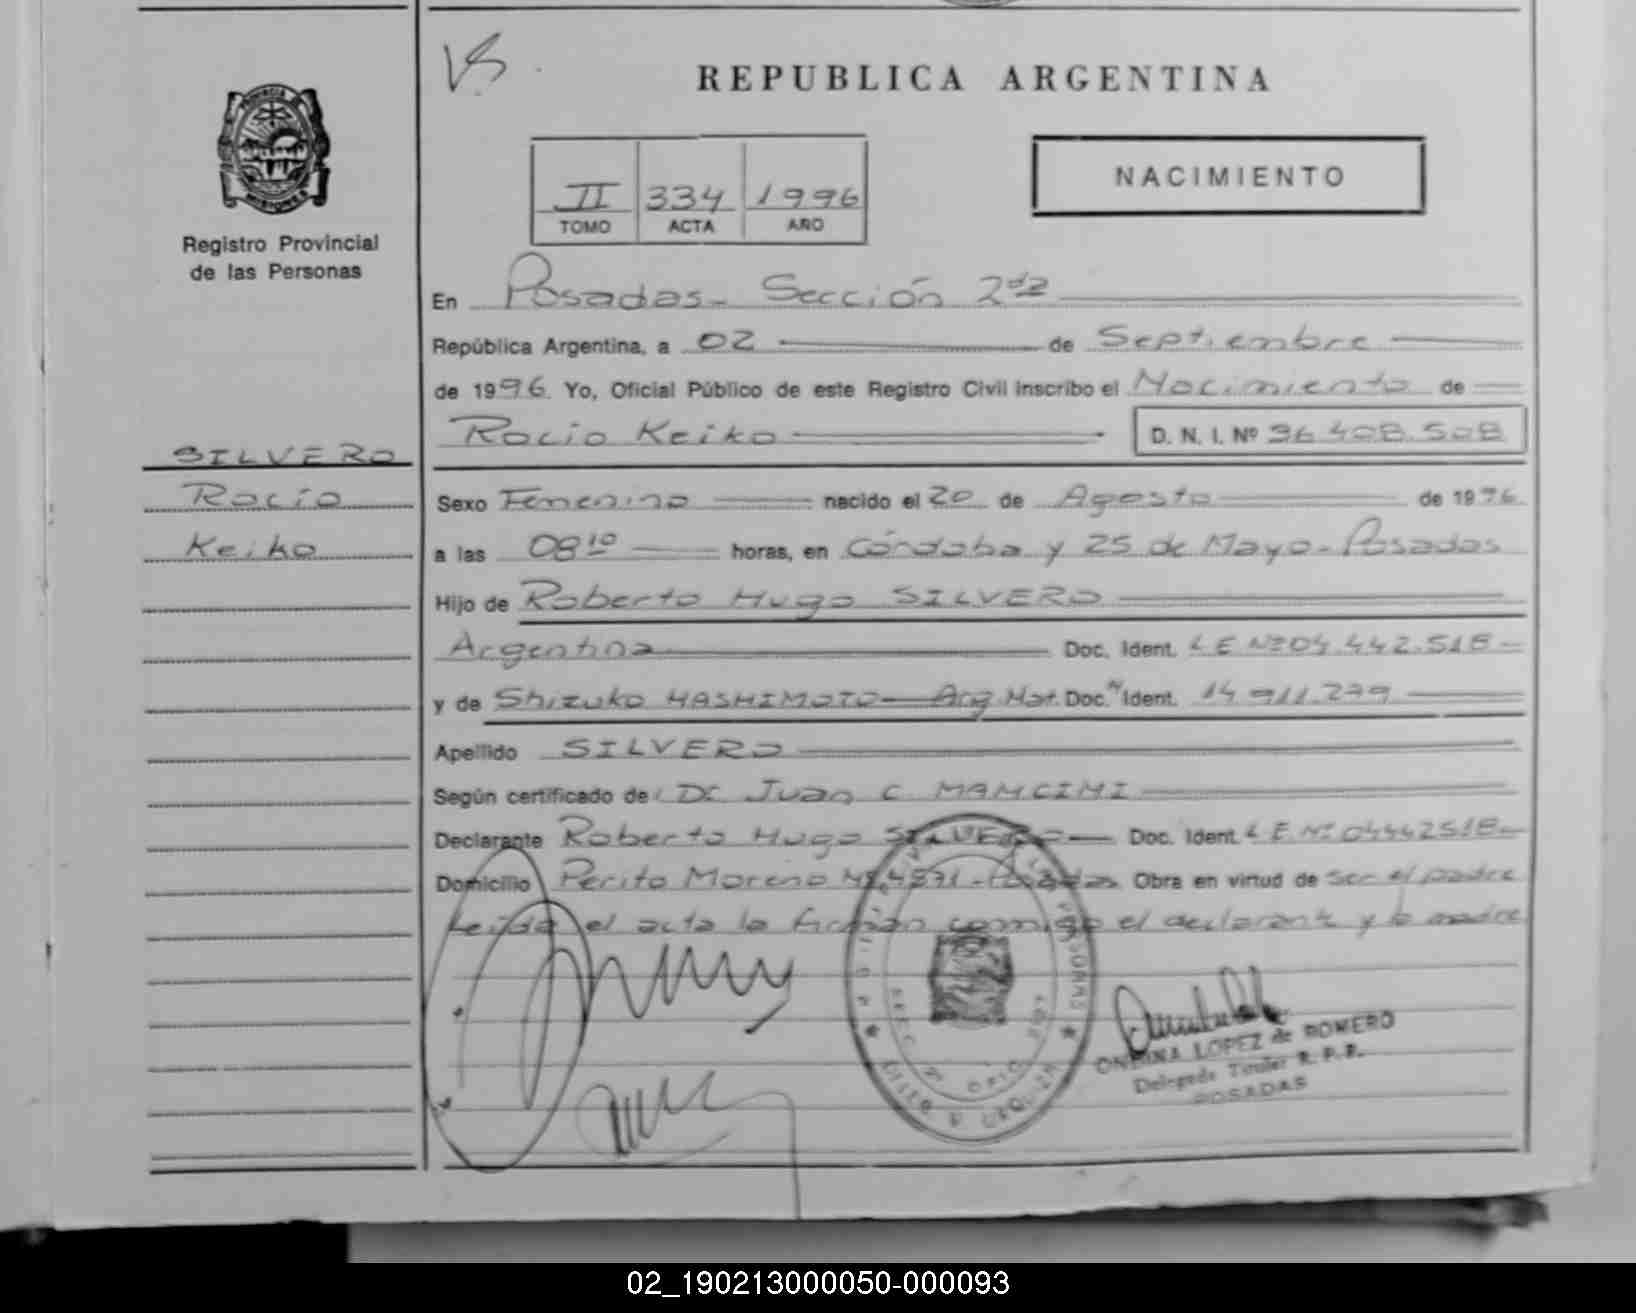 REPUBLICA ARGENTINA
NACIMIENTO
II 334 1996
TOMO ACTA AÑO
Registro Provincial
de las Personas
En Posadas - Sección 2da
República Argentina, a 02 de Septiembre
de 1996. Yo, Oficial Público de este Registro Civil inscribo el Nacimiento de
Rocio Keiko D. N. I. Nº 96.408.508
SILVERO
Rocío
Keiko
Sexo Femenino nacido el 20 de Agosto de 1996
a las 08 10 horas, en Córdoba y 25 de Mayo - Posadas
Hijo de Roberto Hugo SILVERO
Argentina Doc. Ident. L E Nº 04.442.518 -
y de Shizuko HASHIMOTO - Arg. Nat. Doc. Ident. 14 911.279
Apellido SILVERO
Según certificado de Dr Juan C MANCINI
Declarante Roberto Hugo SILVERO Doc. Ident. L E. Nº 04442518 -
Domicilio Perito Moreno Nº 4871 - Posadas Obra en virtud de ser el padre
Leída el acta la firman conmigo el declarante y la madre
LOPEZ de ROMERO
Delegada Titular R. P. P.
POSADAS
02_190213000050-000093